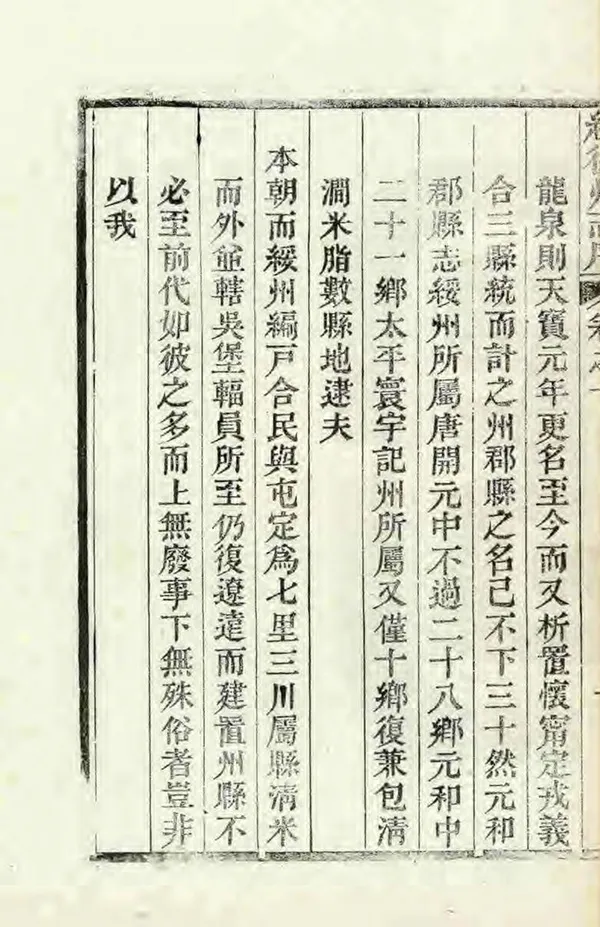 綏德州志序 卷之一
龍泉則天寶元年更名至今而又析置懷甯定戎義
合三縣統而計之州郡縣之名已不下三十然元和
郡縣志綏州所屬唐開元中不過二十八鄉元和中
二十一鄉太平寰宇記州所屬又僅十鄉復兼包淸
澗米脂數縣地逮夫
本朝而綏州編戸合民與屯定爲七里三川屬縣淸米
而外並轄吳堡輻員所至仍復遼遠而建置州縣不
必至前代如彼之多而上無廢事下無殊俗者豈非
以我